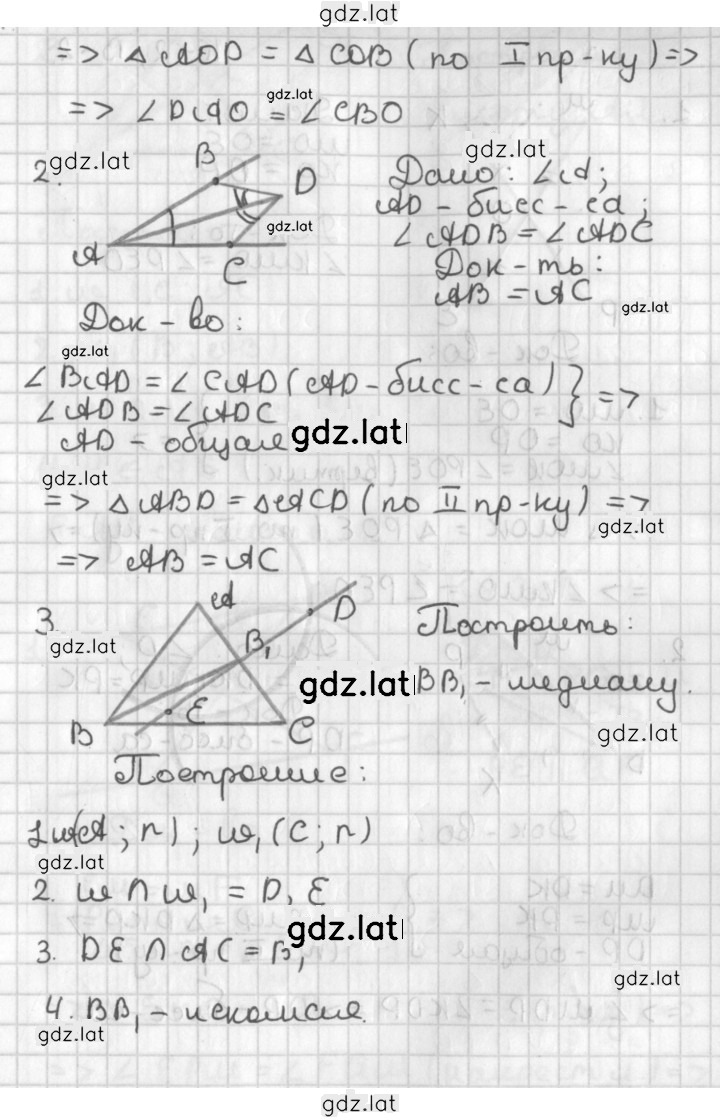 gdz.lat
=> △ AOD = △ COB (по I пр-ку) =>
=> ∠DAO = ∠CBO
gdz.lat
2.
gdz.lat
B
D
A
C
gdz.lat
gdz.lat
Дано: ∠A;
AD - бисс-са;
∠ADB = ∠ADC
Док-ть:
AB = AC
gdz.lat
Док-во:
gdz.lat
∠BAD = ∠CAD (AD - бисс-са)
∠ADB = ∠ADC
AD - общая
} =>
gdz.lat
gdz.lat
=> △ABD = △ACD (по II пр-ку) =>
gdz.lat
=> AB = AC
3.
gdz.lat
A
D
B₁
E
B
C
gdz.lat
Построить:
BB₁ - медиану.
gdz.lat
Построение:
1. w(A; r); w₁(C; r)
gdz.lat
2. w ∩ w₁ = D, E
gdz.lat
3. DE ∩ AC = B₁
gdz.lat
4. BB₁ - искомая.
gdz.lat
gdz.lat